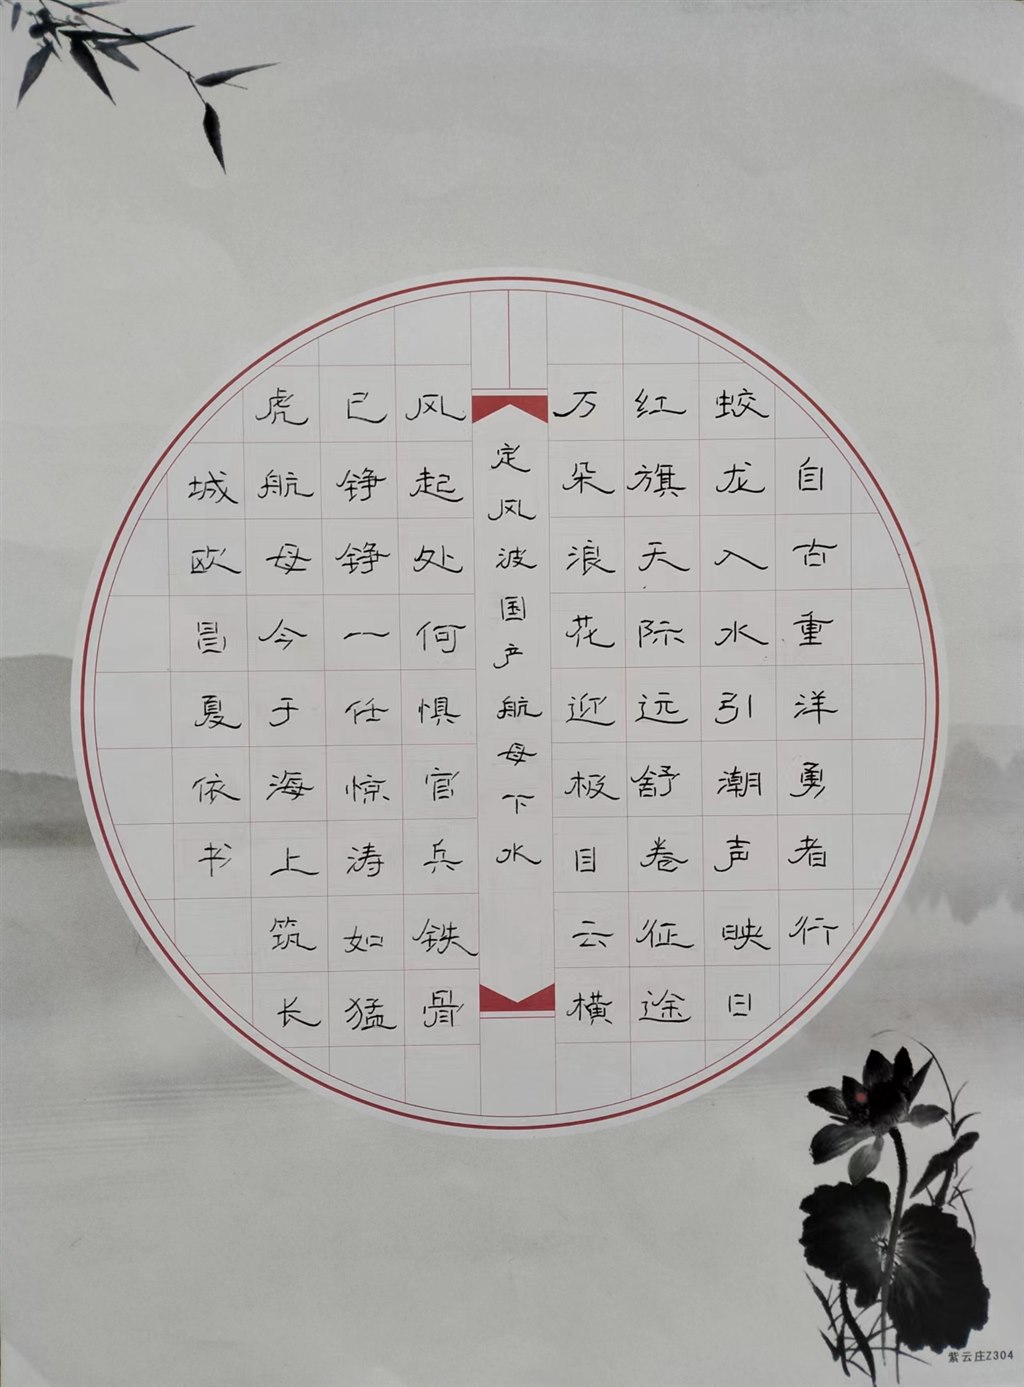 自古重洋勇者行
蛟龙入水引潮声映日
红旗天际远舒卷征途
万朵浪花迎极目云横
定风波国产航母下水
风起处何惧官兵铁骨
已铮铮一任惊涛如猛
虎航母今于海上筑长
城欧昌夏依书
紫云庄Z304